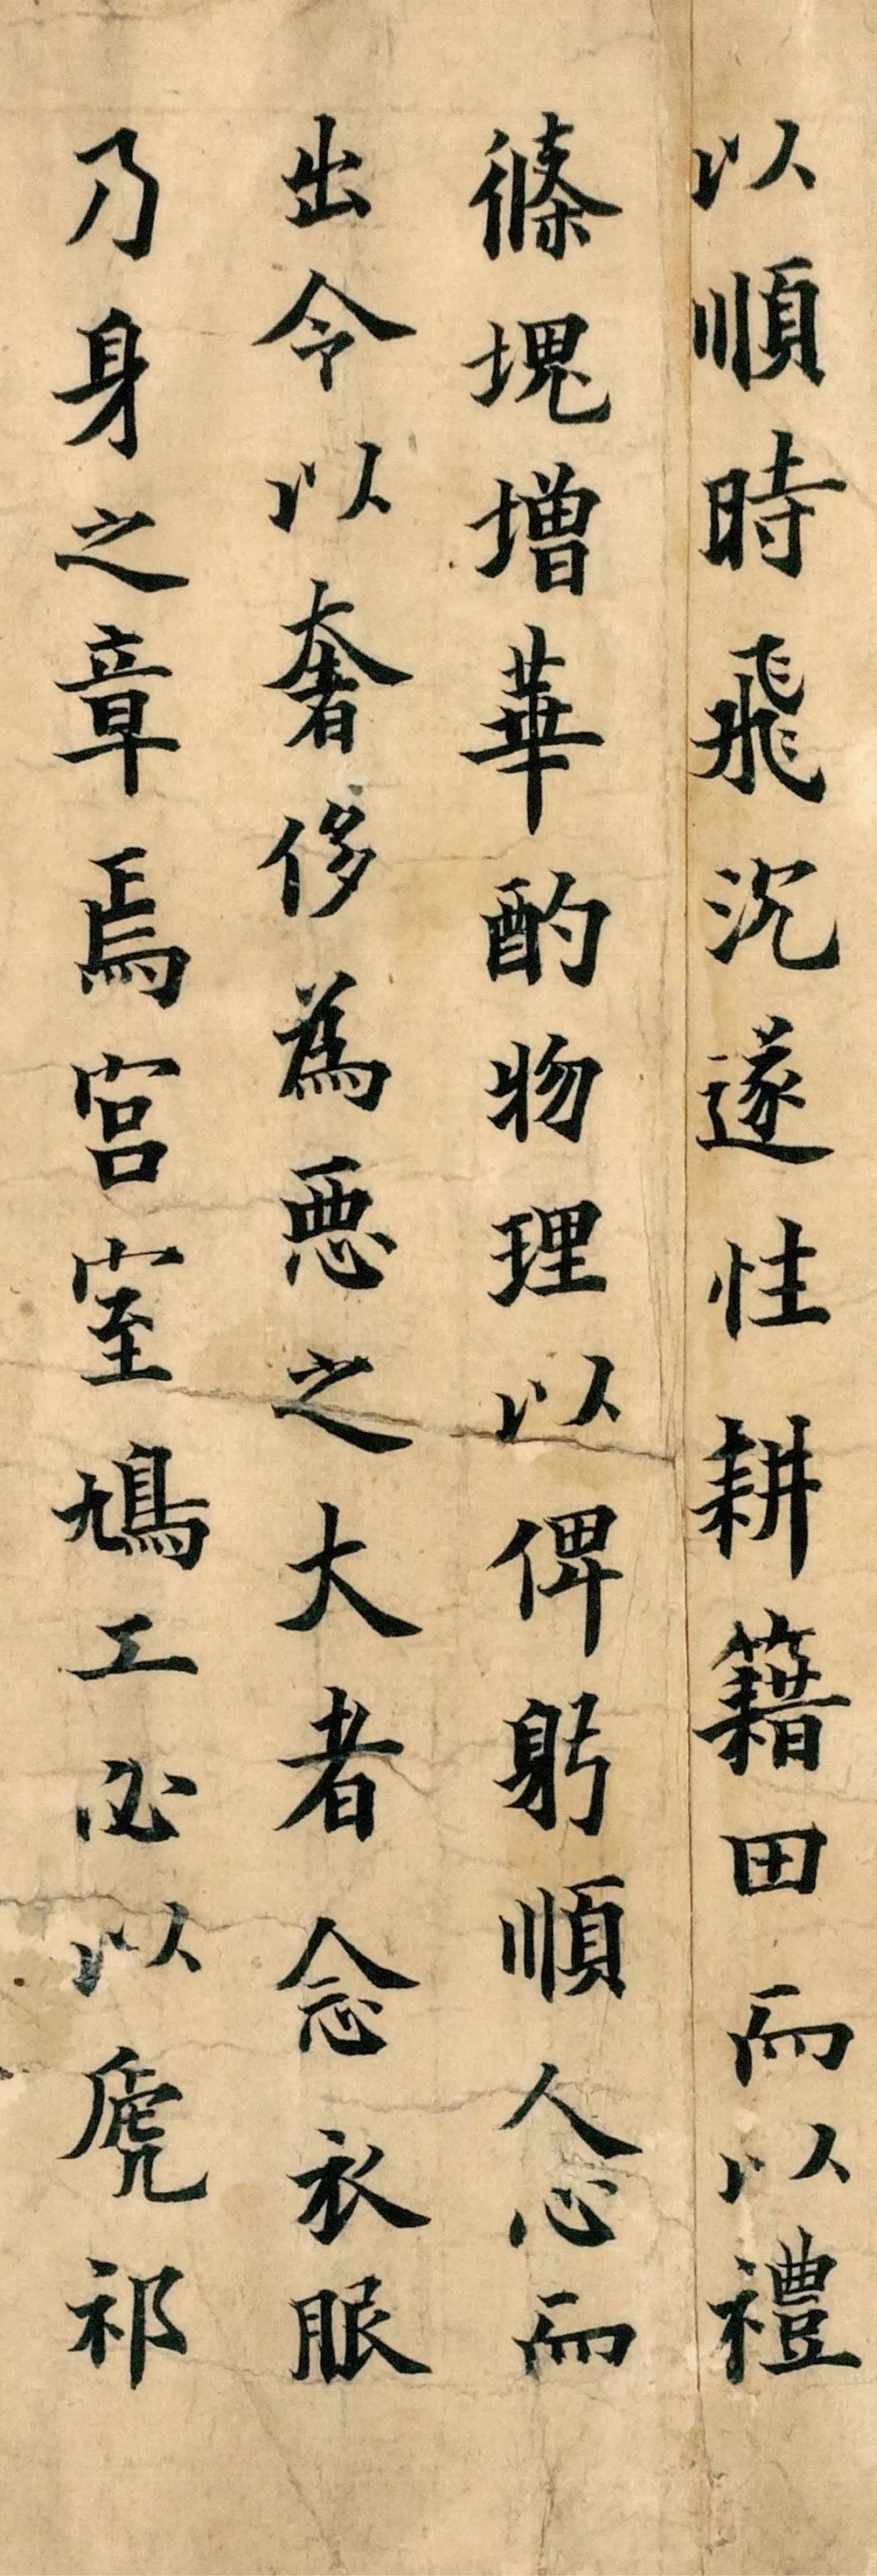 以順時飛沉遂性耕籍田而以禮
條塊增華酌物理以俾躬順人心而
出令以奢侈為惡之大者念衣服
乃身之章焉宮室鳩工必以虒祁